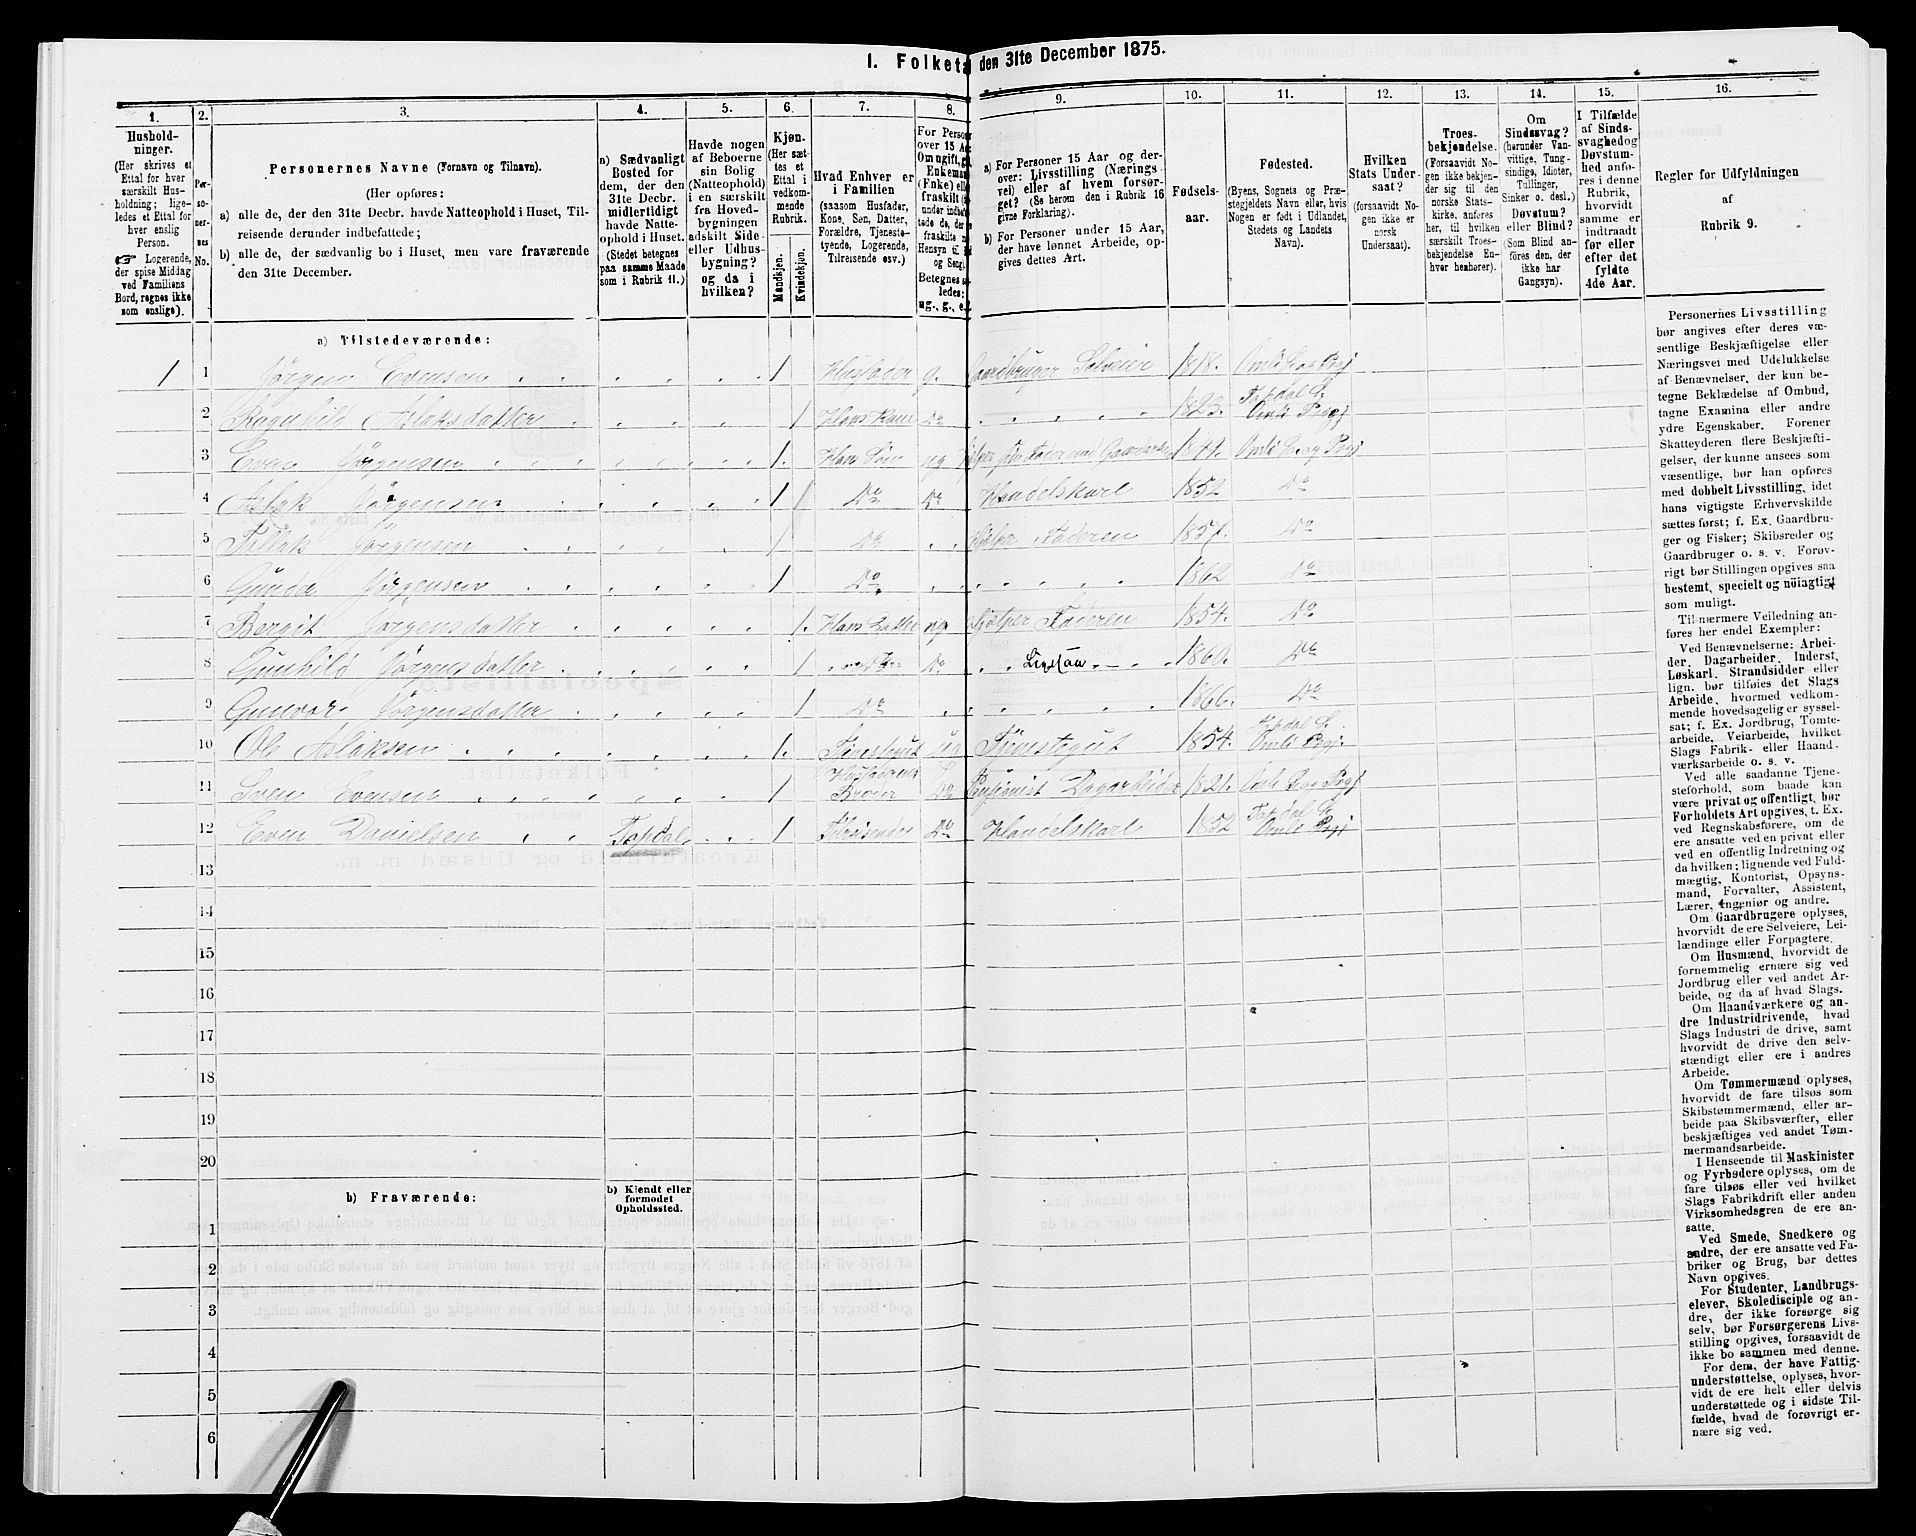 I. Folketa den 31te December 1875.
1. 2. 3. 4. 5. 6. 7. 8. 9. 10. 11. 12. 13. 14. 15. 16.
Hushold-
ninger.
(Her skrives et
Ettal for hver
særskilt Hus-
holdning; lige-
ledes et Ettal for
hver enslig
Person.
☞ Logerende,
der spise Middag
ved Familiens
Bord, regnes ikke
som enslige).
Per-
so-
ner-
nes
No.
Personernes Navne (Fornavn og Tilnavn).
(Her opføres:
a) alle de, der den 31te Decbr. havde Natteophold i Huset, Til-
reisende derunder indbefattede;
b) alle de, der sædvanlig bo i Huset, men vare fraværende
den 31te December.
a) Sædvanligt
Bosted for
dem, der den
31te Decbr.
midlertidigt
havde Natte-
ophold i Huset.
(Stedet betegnes
paa samme Maade
som i Rubrik 11.)
Havde nogen
af Beboerne
sin Bolig
(Natteophold)
i en særskilt
fra Hoved-
bygningen
adskilt Side-
eller Udhus-
bygning?
og da i
hvilken?
Kjøn.
(Her sæt-
tes et
Ettal i
vedkom-
mende
Rubrik.
Mandkjøn.
Kvindekjøn.
Hvad Enhver er
i Familien
(saasom Husfader,
Kone, Søn, Datter,
Forældre, Tjeneste-
tyende, Logerende,
Tilreisende osv.)
For Person
over 15 Aa
Om ugift, gi
Enkeman
(Enke) elle
fraskilt (s
under indbe
tede de, d
fraskilte m
Hensyn til B
og Seng).
Betegnes s
ledes:
ug., g., e.,
a) For Personer 15 Aar og der-
over: Livsstilling (Nærings-
vei) eller af hvem forsør-
get? (Se herom den i Rubrik 16
givne Forklaring).
b) For Personer under 15 Aar,
der have lønnet Arbeide, op-
gives dettes Art.
Fødsels-
aar.
Fødested.
(Byens, Sognets og Præ-
stegjeldets Navn eller, hvis
Nogen er født i Udlandet,
Stedets og Landets
Navn).
Hvilken
Stats Under-
saat?
(forsaavidt No-
gen ikke er
norsk
Undersaat).
Troes-
bekjendelse.
(Forsaavidt No-
gen ikke bekjen-
der sig til den
norske Stats-
kirke, anføres
her, til hvilken
særskilt Troes-
bekjendelse En-
hver henhører).
Om
Sindssvag?
(herunder Van-
vittige, Tung-
sindige, Idioter,
Tullinger,
Sinker o. desl.)
Døvstum?
eller Blind?
(Som Blind an-
føres den, der
ikke har
Gangsyn).
I Tilfælde
af Sinds-
svaghed og
Døvstum-
hed anfø-
res i denne
Rubrik,
hvorvidt
samme er
indtraadt
før eller
efter det
fyldte
4de Aar.
Regler for Udfyldningen
af
Rubrik 9.
a) Tilstedeværende:
1 1 Jørgen Evensen 1 Husfader g. Gaardbruger Selveier 1818. Omli S og Prgj
2 Ragnhild Aslaksdatter 1 Hans Kone Do 1823. Topdal S. Omli Prgj
3 Even Jørgensen 1. Hans Søn ug Hjelper sin Fader med 1849. Omli S og Prgj
4 Aslak Jørgensen 1 Do Do Handelskarl 1852 Do
5 Tallak Jørgensen 1 Do Hjælper Faderen 1857. Do
6 Gunder Jørgensen 1 Do 1862 Do
7 Bergit Jørgensdatter 1. Hans Datter ug Hjælper Faderen 1854. Do
8 Gunhild Jørgensdatter 1 Do Ligesaa 1860. Do
9 Gunvor Jørgensdatter 1 Do 1866. Do
10 Ole Aslaksen 1. Tjenestegut ug Tjenestegut 1854. Topdal S. Omli Prgj.
11 Sven Evensen 1 Husfaderens Broder Do Dagarbeider 1821. Omli S og Prgj
12 Even Danielsen Topdal 1 Tilreisende Do Handelskarl 1852 Topdal S. Omli Prgj
13
14
15
16
17
18
19
20
b) Fraværende:
b) Kjendt eller
formodet
Opholdssted.
1
2
3
4
5
6
Personernes Livsstilling
bør angives efter deres væ-
sentlige Beskjæftigelse eller
Næringsvei med Udelukkelse
af Benævnelser, der kun be-
tegne Beklædelse af Ombud,
tagne Examina eller andre
ydre Egenskaber. Forener
Skatteyderen flere Beskjæfti-
gelser, der kunne ansees som
væsentlige, bør han opføres
med dobbelt Livsstilling, idet
hans vigtigste Erhvervskilde
sættes først; f. Ex. Gaardbru-
ger og Fisker; Skibsreder og
Gaardbruger o. s. v. Forøv-
rigt bør Stillingen opgives saa
bestemt, specielt og nöiagtigt
som muligt.
Til nærmere Veiledning an-
føres her endel Exempler:
Ved Benævnelserne: Arbei-
der, Dagarbeider, Inderst,
Løskarl, Strandsidder eller
lign. bør tilføies det Slags
Arbeide, hvormed vedkom-
mende hovedsagelig er syssel-
sat; f. Ex. Jordbrug, Tomte-
arbeide, Veiarbeide, hvilket
Slags Fabrik- eller Haand-
værksarbeide o. s. v.
Ved alle saadanne Tjene-
steforhold, som baade kan
være privat og offentligt, bør
Forholdets Art opgives, t. Ex.
ved Regnskabsførere, om de
ere ansatte ved en privat eller
ved en offentlig Indretning og
da hvilken; lignende ved Fuld-
mægtig, Kontorist, Opsyns-
mand, Forvalter, Assistent,
Lærer, Ingeniør og andre.
Om Gaardbrugere oplyses,
hvorvidt de ere Selveiere, Lei-
lændinge eller Forpagtere.
Om Husmænd, hvorvidt de
fornemmelig ernære sig ved
Jordbrug eller ved andet Ar-
beide, og da af hvad Slags.
Om Haandværkere og an-
dre Industridrivende, hvad
Slags Industri de drive, samt
hvorvidt de drive den selv-
stændigt eller ere i andres
Arbeide.
Om Tømmermænd oplyses,
hvorvidt de fare tilsøs som
Skibstømmermænd, eller ar-
beide paa Skibsværfter, eller
beskjæftiges ved andet Tøm-
mermandsarbeide.
I Henseende til Maskinister
og Fyrbødere oplyses, om de
fare tilsøs eller ved hvilket
Slags Fabrikdrift eller anden
Virksomhedsgren de ere an-
satte.
Ved Smede, Snedkere og
andre, der ere ansatte ved Fa-
briker og Brug, bør dettes
Navn opgives.
For Studenter, Landbrugs-
elever, Skoledisciple og an-
dre, der ikke forsørge sig
selv, bør Forsørgerens Livs-
stilling opgives, forsaavidt de
ikke bo sammen med denne.
For dem, der have Fattig-
understøttelse, oplyses, hvor-
vidt de ere helt eller delvis
understøttede og i sidste Til-
fælde, hvad de forøvrigt er-
nære sig ved.